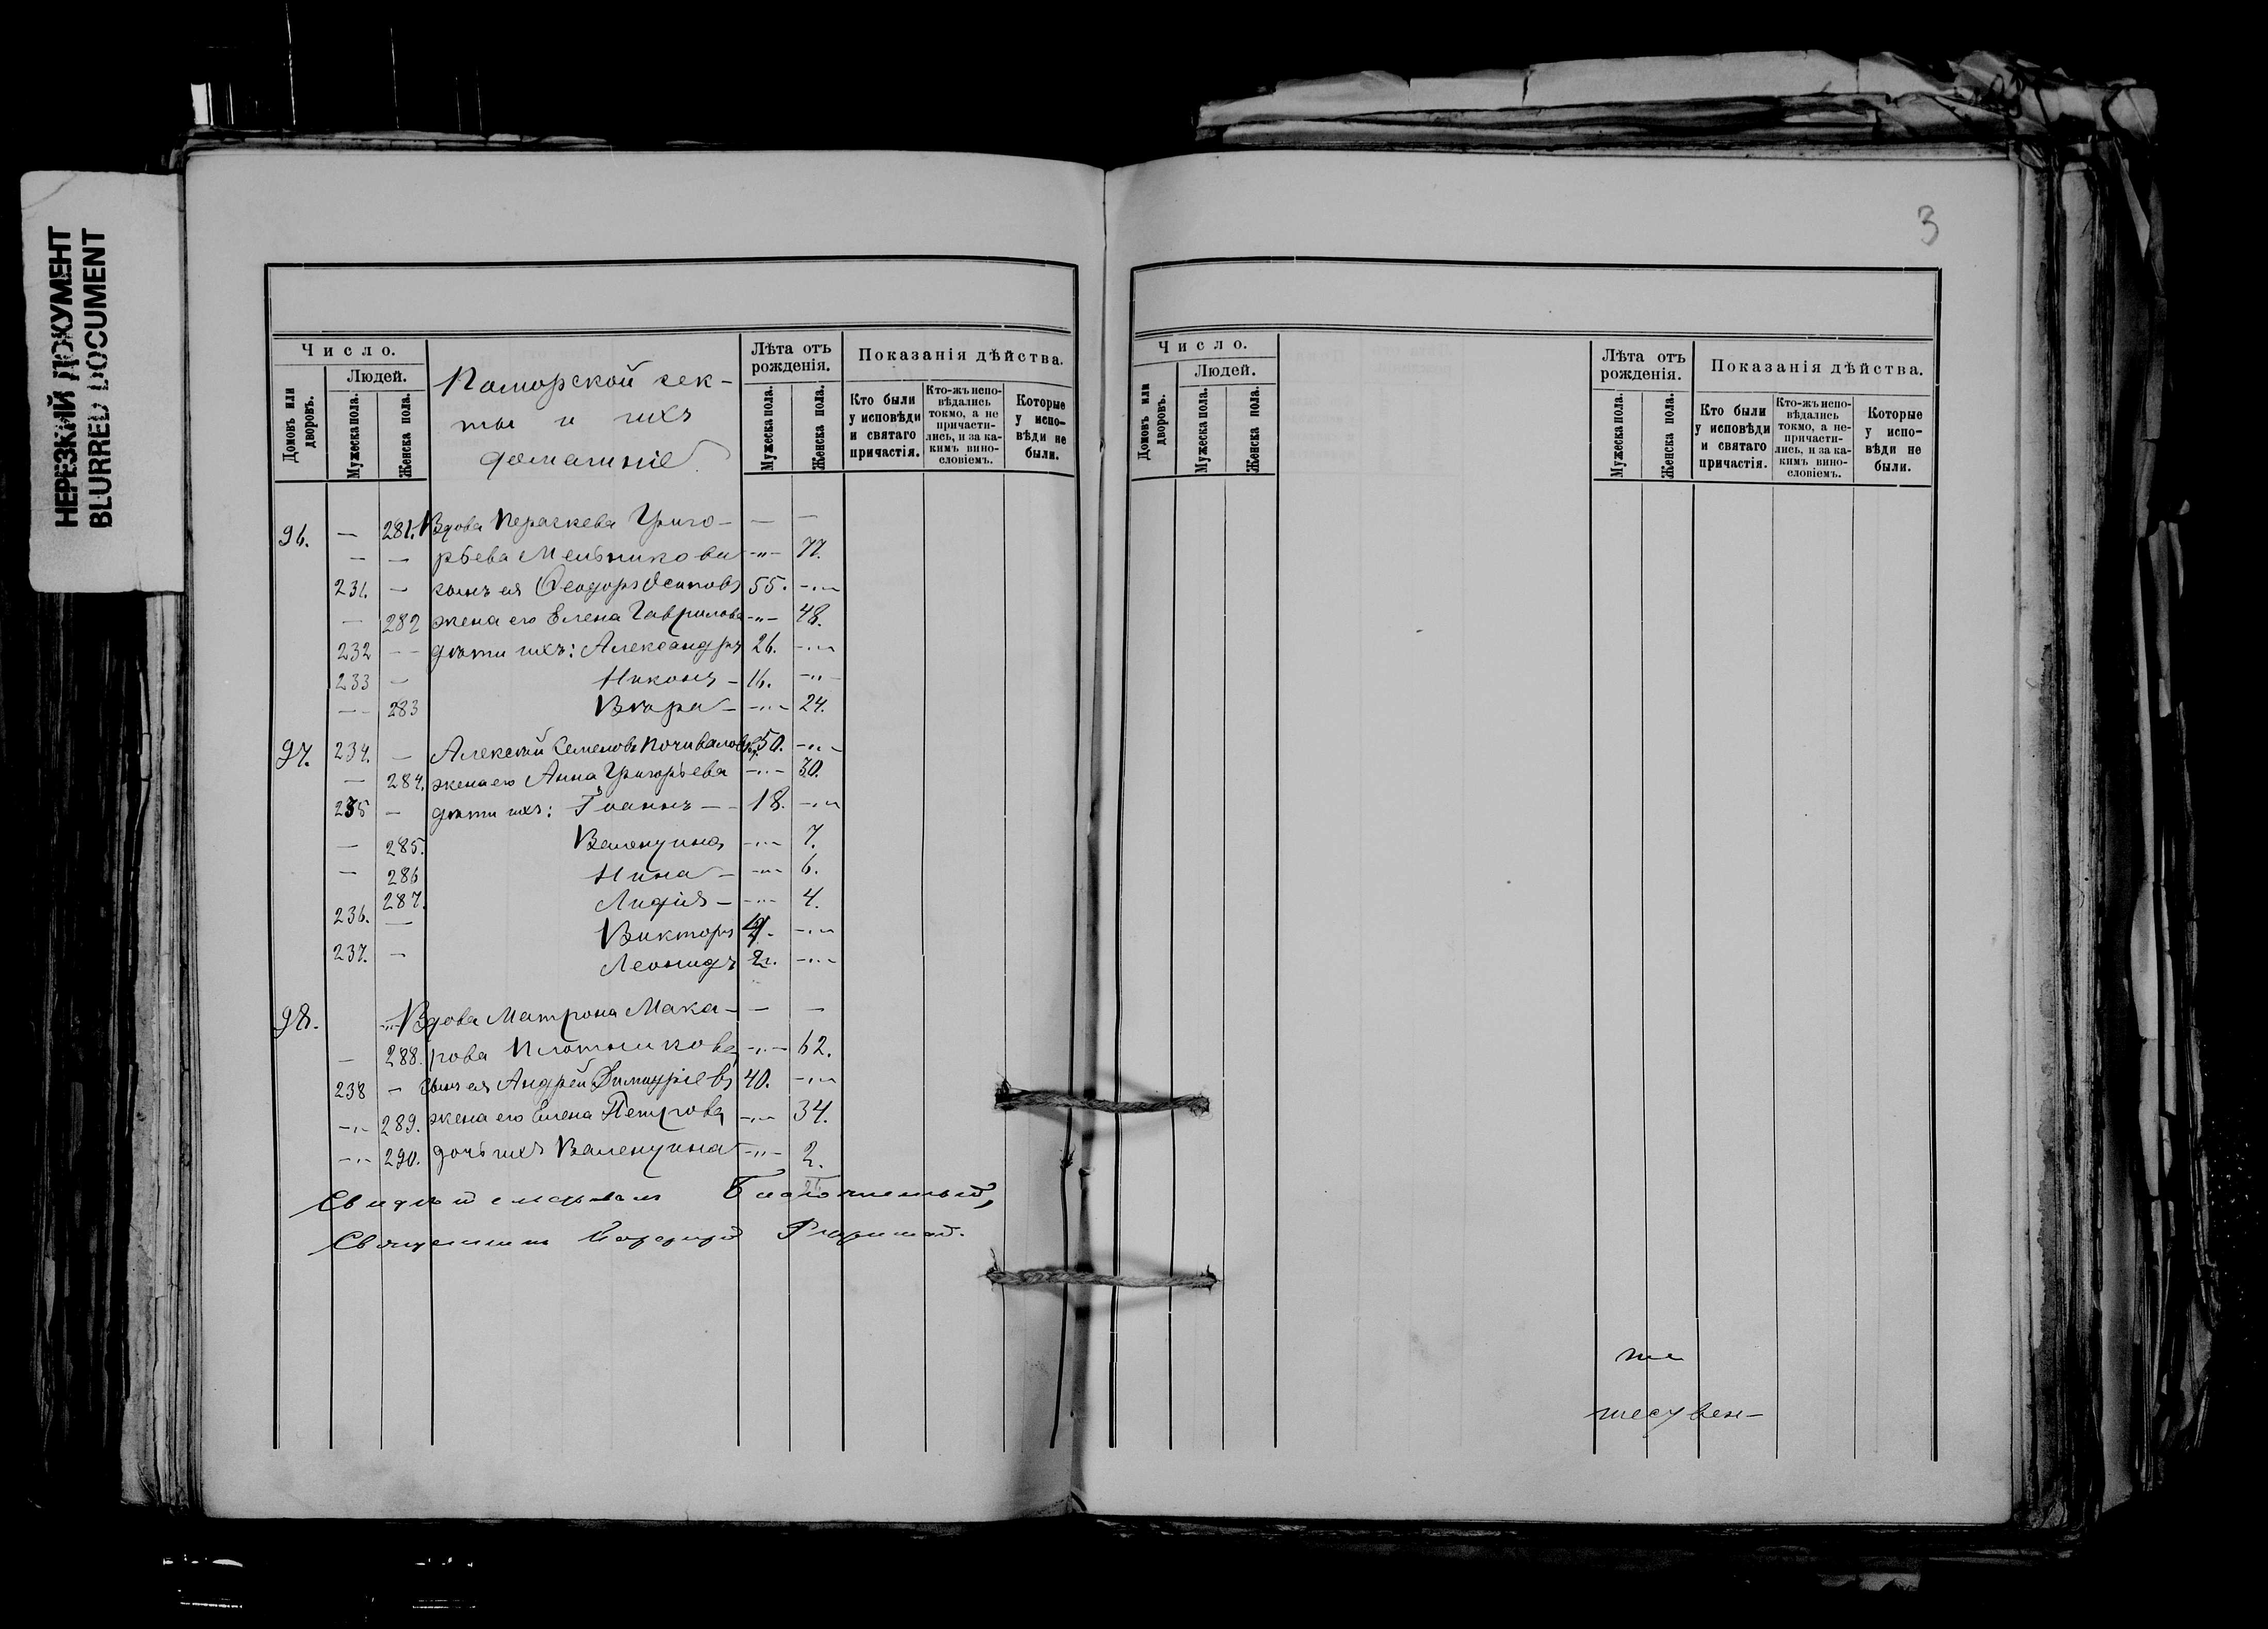 НЕРЕЗКИЙ ДОКУМЕНТ
BLURRED DOCUMENT
Число.
Людей.
Домовъ или дворовъ.
Мужеска пола.
Женска пола.
Поморской сек-
ты и ихъ
домашніе.
Лѣта отъ рожденія.
Мужеска пола.
Женска пола.
Показанія дѣйства.
Кто были у исповѣди и святаго причастія.
Кто-жъ испо-вѣдались токмо, а не причасти-лись, и за ка-кимъ вино-словіемъ.
Которые у испо-вѣди не были.
96. — 281. Вдова Параскева Григо- — —
— — рьева Мельникова -"- 77.
231. — сынъ ея Ѳеодоръ Осиповъ 55. -"-
— 282 жена его Елена Гаврилова -"- 48.
232 — дѣти ихъ: Александръ 26. -"-
233 — Никонъ - 16. -"-
— 283 Вѣра - -"- 24.
97. 234. — Алексѣй Семеновъ Почиваловъ 50. -"-
— 284. жена его Анна Григорьева -"- 30.
235 — дѣти ихъ: Іоаннъ — 18. -"-
— 285. Валентина -"- 7.
— 286 Нина - -"- 6.
287. Лидія - -"- 4.
236. — Викторъ 4. -"-
237. — Леонидъ 2. -"-
98. -"- Вдова Матрона Мака- — —
— 288. рова Плотникова -"- 62.
238 — сынъ ея Андрей Димитріевъ 40. -"-
-"- 289. жена его Елена Петрова -"- 34.
-"- 290. дочь ихъ Валентина -"- 2.
Благочинный,
Священникъ
3
Число.
Людей.
Домовъ или дворовъ.
Мужеска пола.
Женска пола.
Лѣта отъ рожденія.
Мужеска пола.
Женска пола.
Показанія дѣйства.
Кто были у исповѣди и святаго причастія.
Кто-жъ испо-вѣдались токмо, а не-причасти-лись, и за ка-кимъ вино-словіемъ.
Которые у испо-вѣди не были.